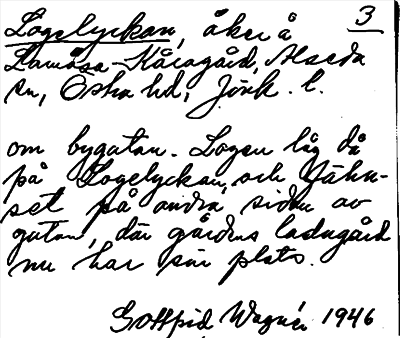 Logelyckan, åker å 3
Lamåsa-Kåragård, Alseda
sn, Östra hd, Jönk. l.
om bygatan. Logen låg då
på Logelyckan, och fähu-
set på andra sidan av
gatan, där gårdens ladugård
nu har sin plats.
Gottfrid Wagnér 1946